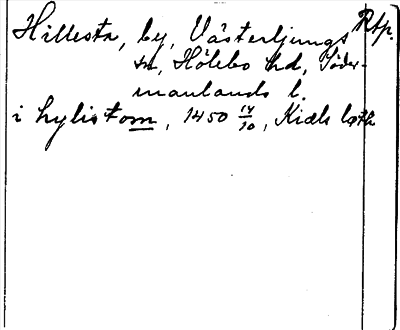 Hillesta, by, Västerljungs Rtp.
sn, Hölebo hd, Söder-
manlands l.
i hylistom, 1450 14/10, Kiæls